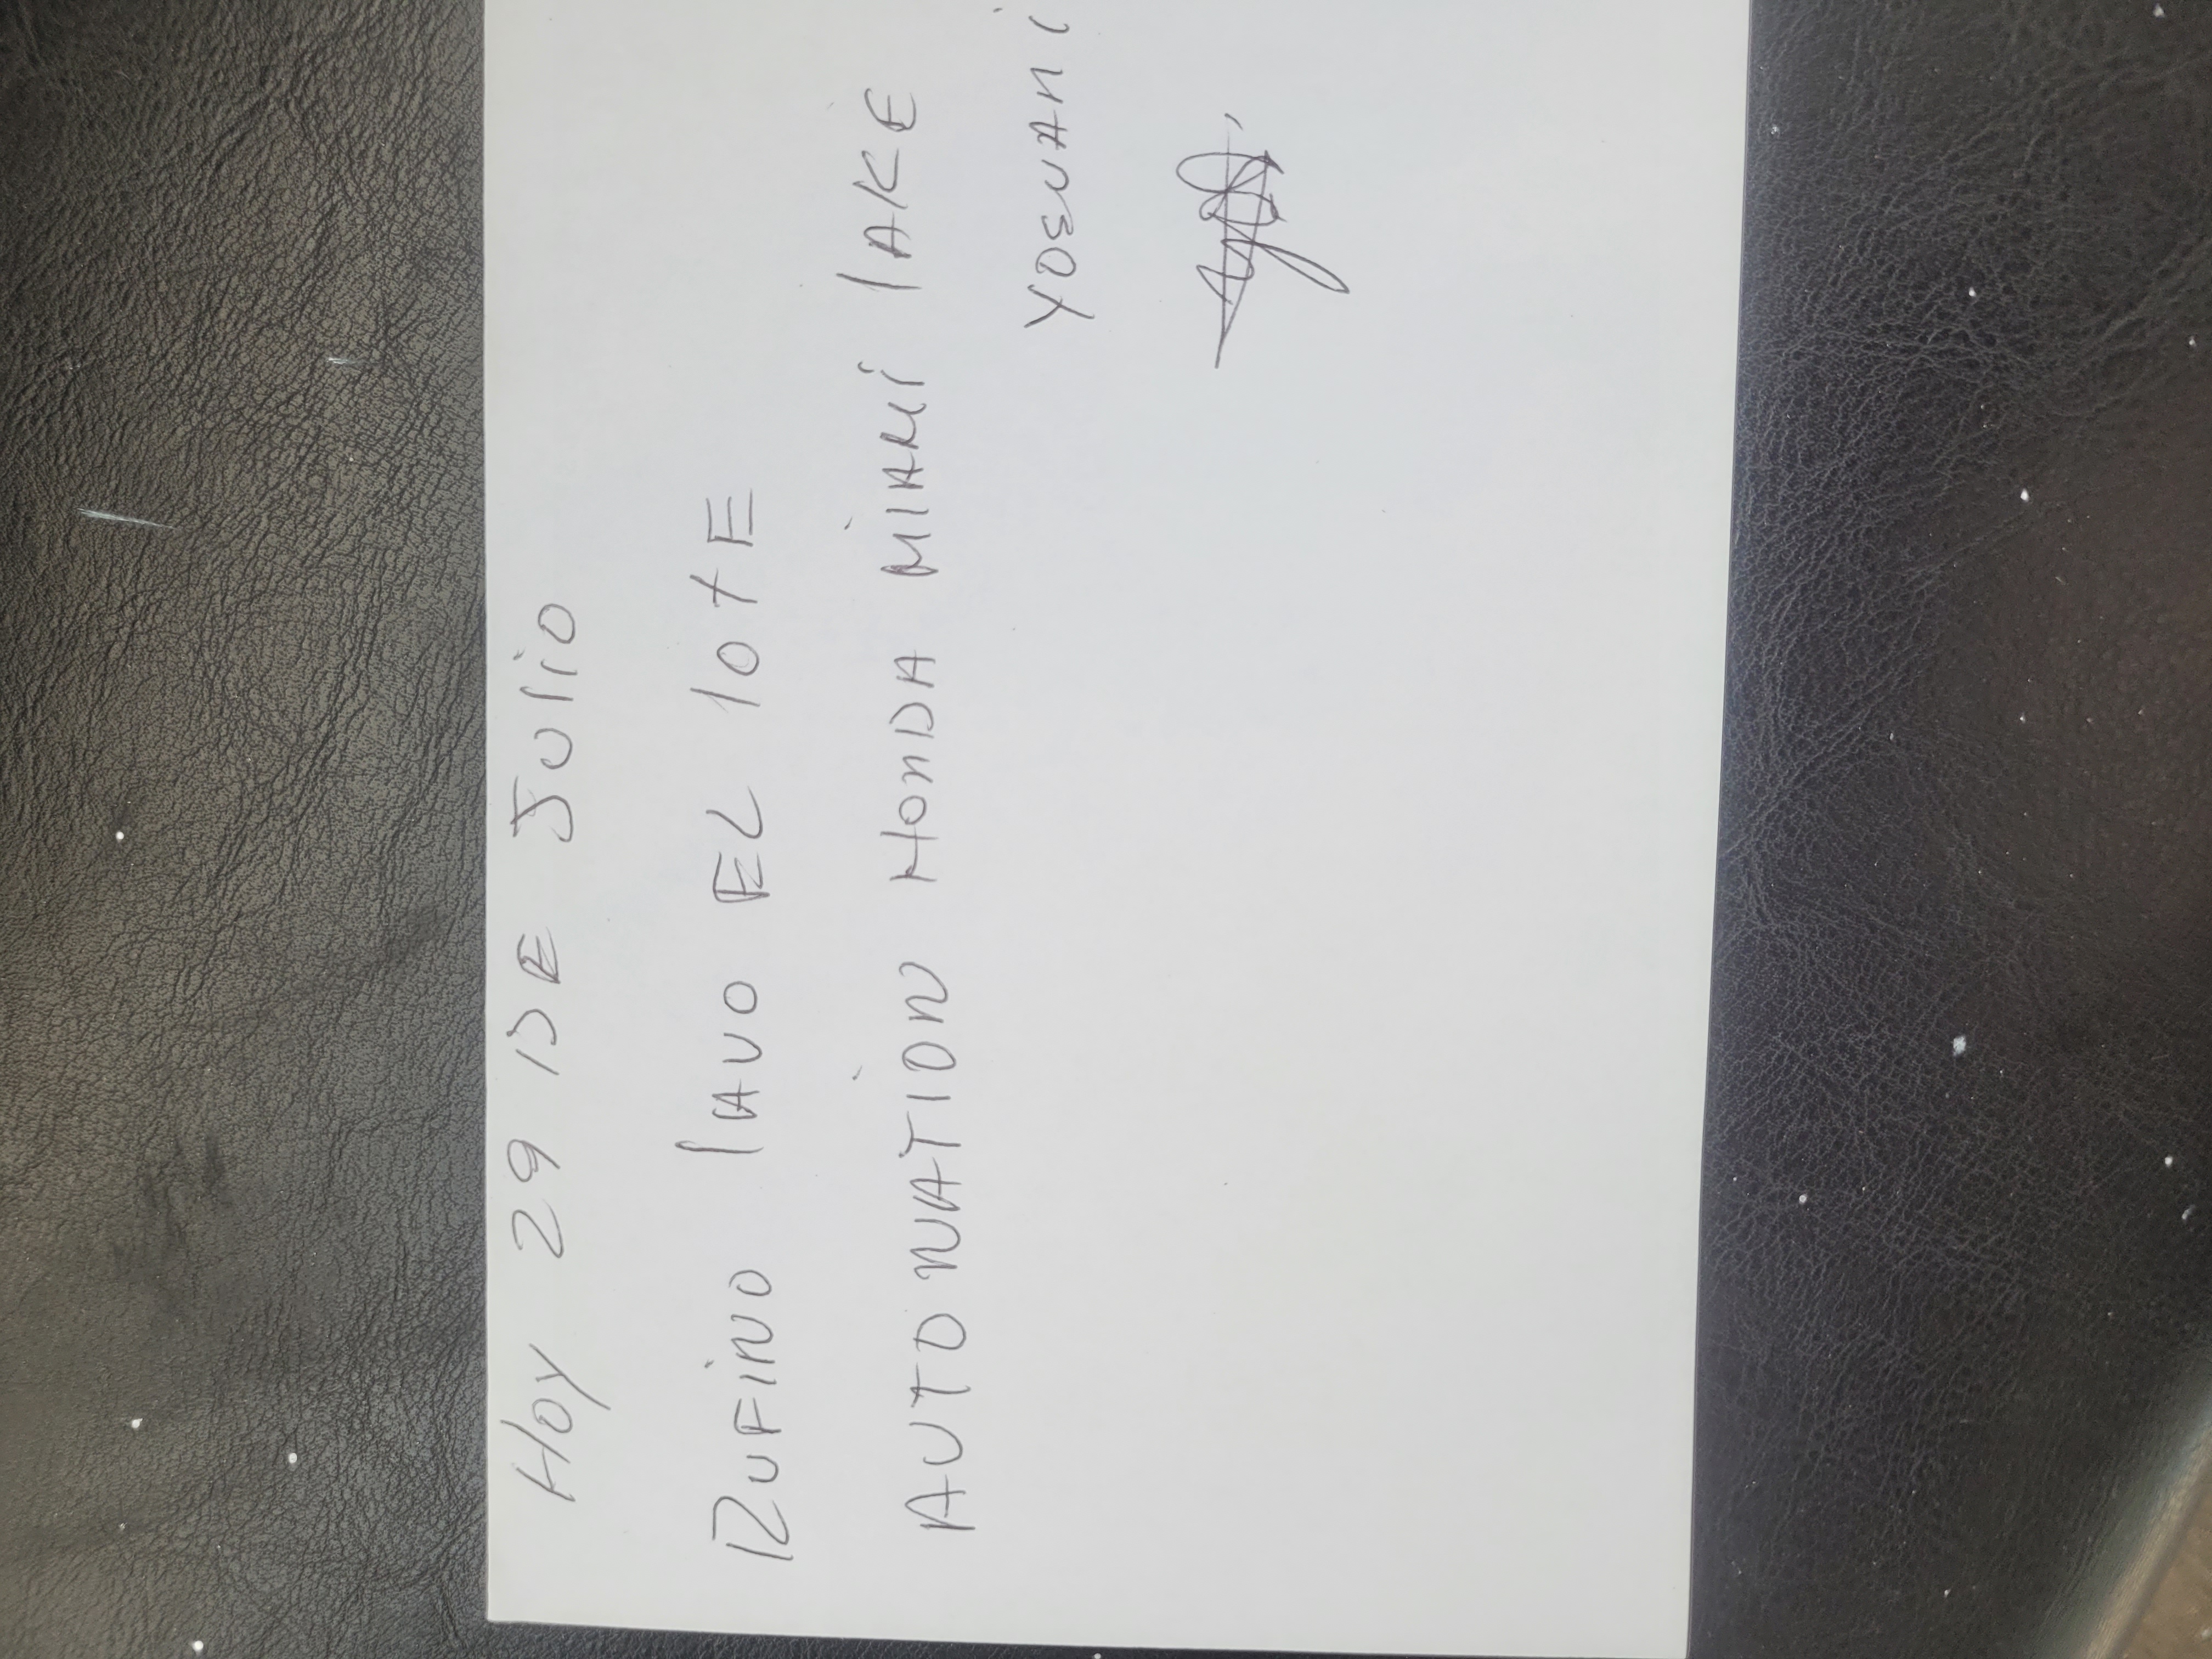 Hoy 29 DE Julio
RUFINO lAVO EL lOtE
AUTONATION HONDA MIAMI lAKE
YOSVANI